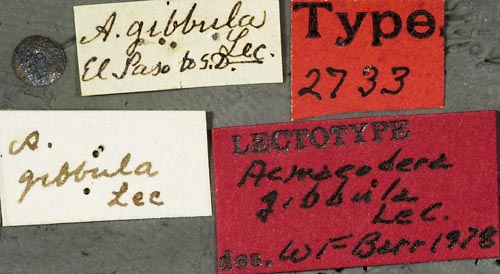 A. gibbula
Lec.
El Paso to S.D.
Type
2733
A.
gibbula
Lec
LECTOTYPE
Acmaeodera
gibbula
Lec.
des. WF Barr 1978